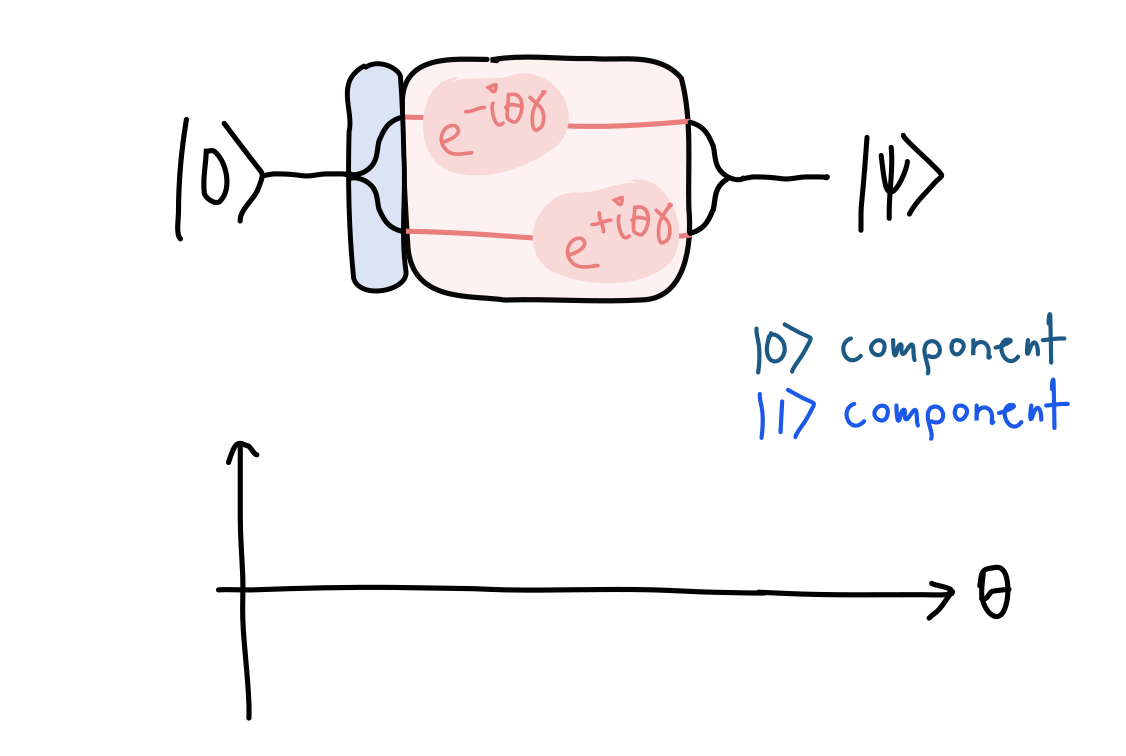 |0⟩
e^{-iθγ}
e^{+iθγ}
|ψ⟩
|0⟩ component
|1⟩ component
θ